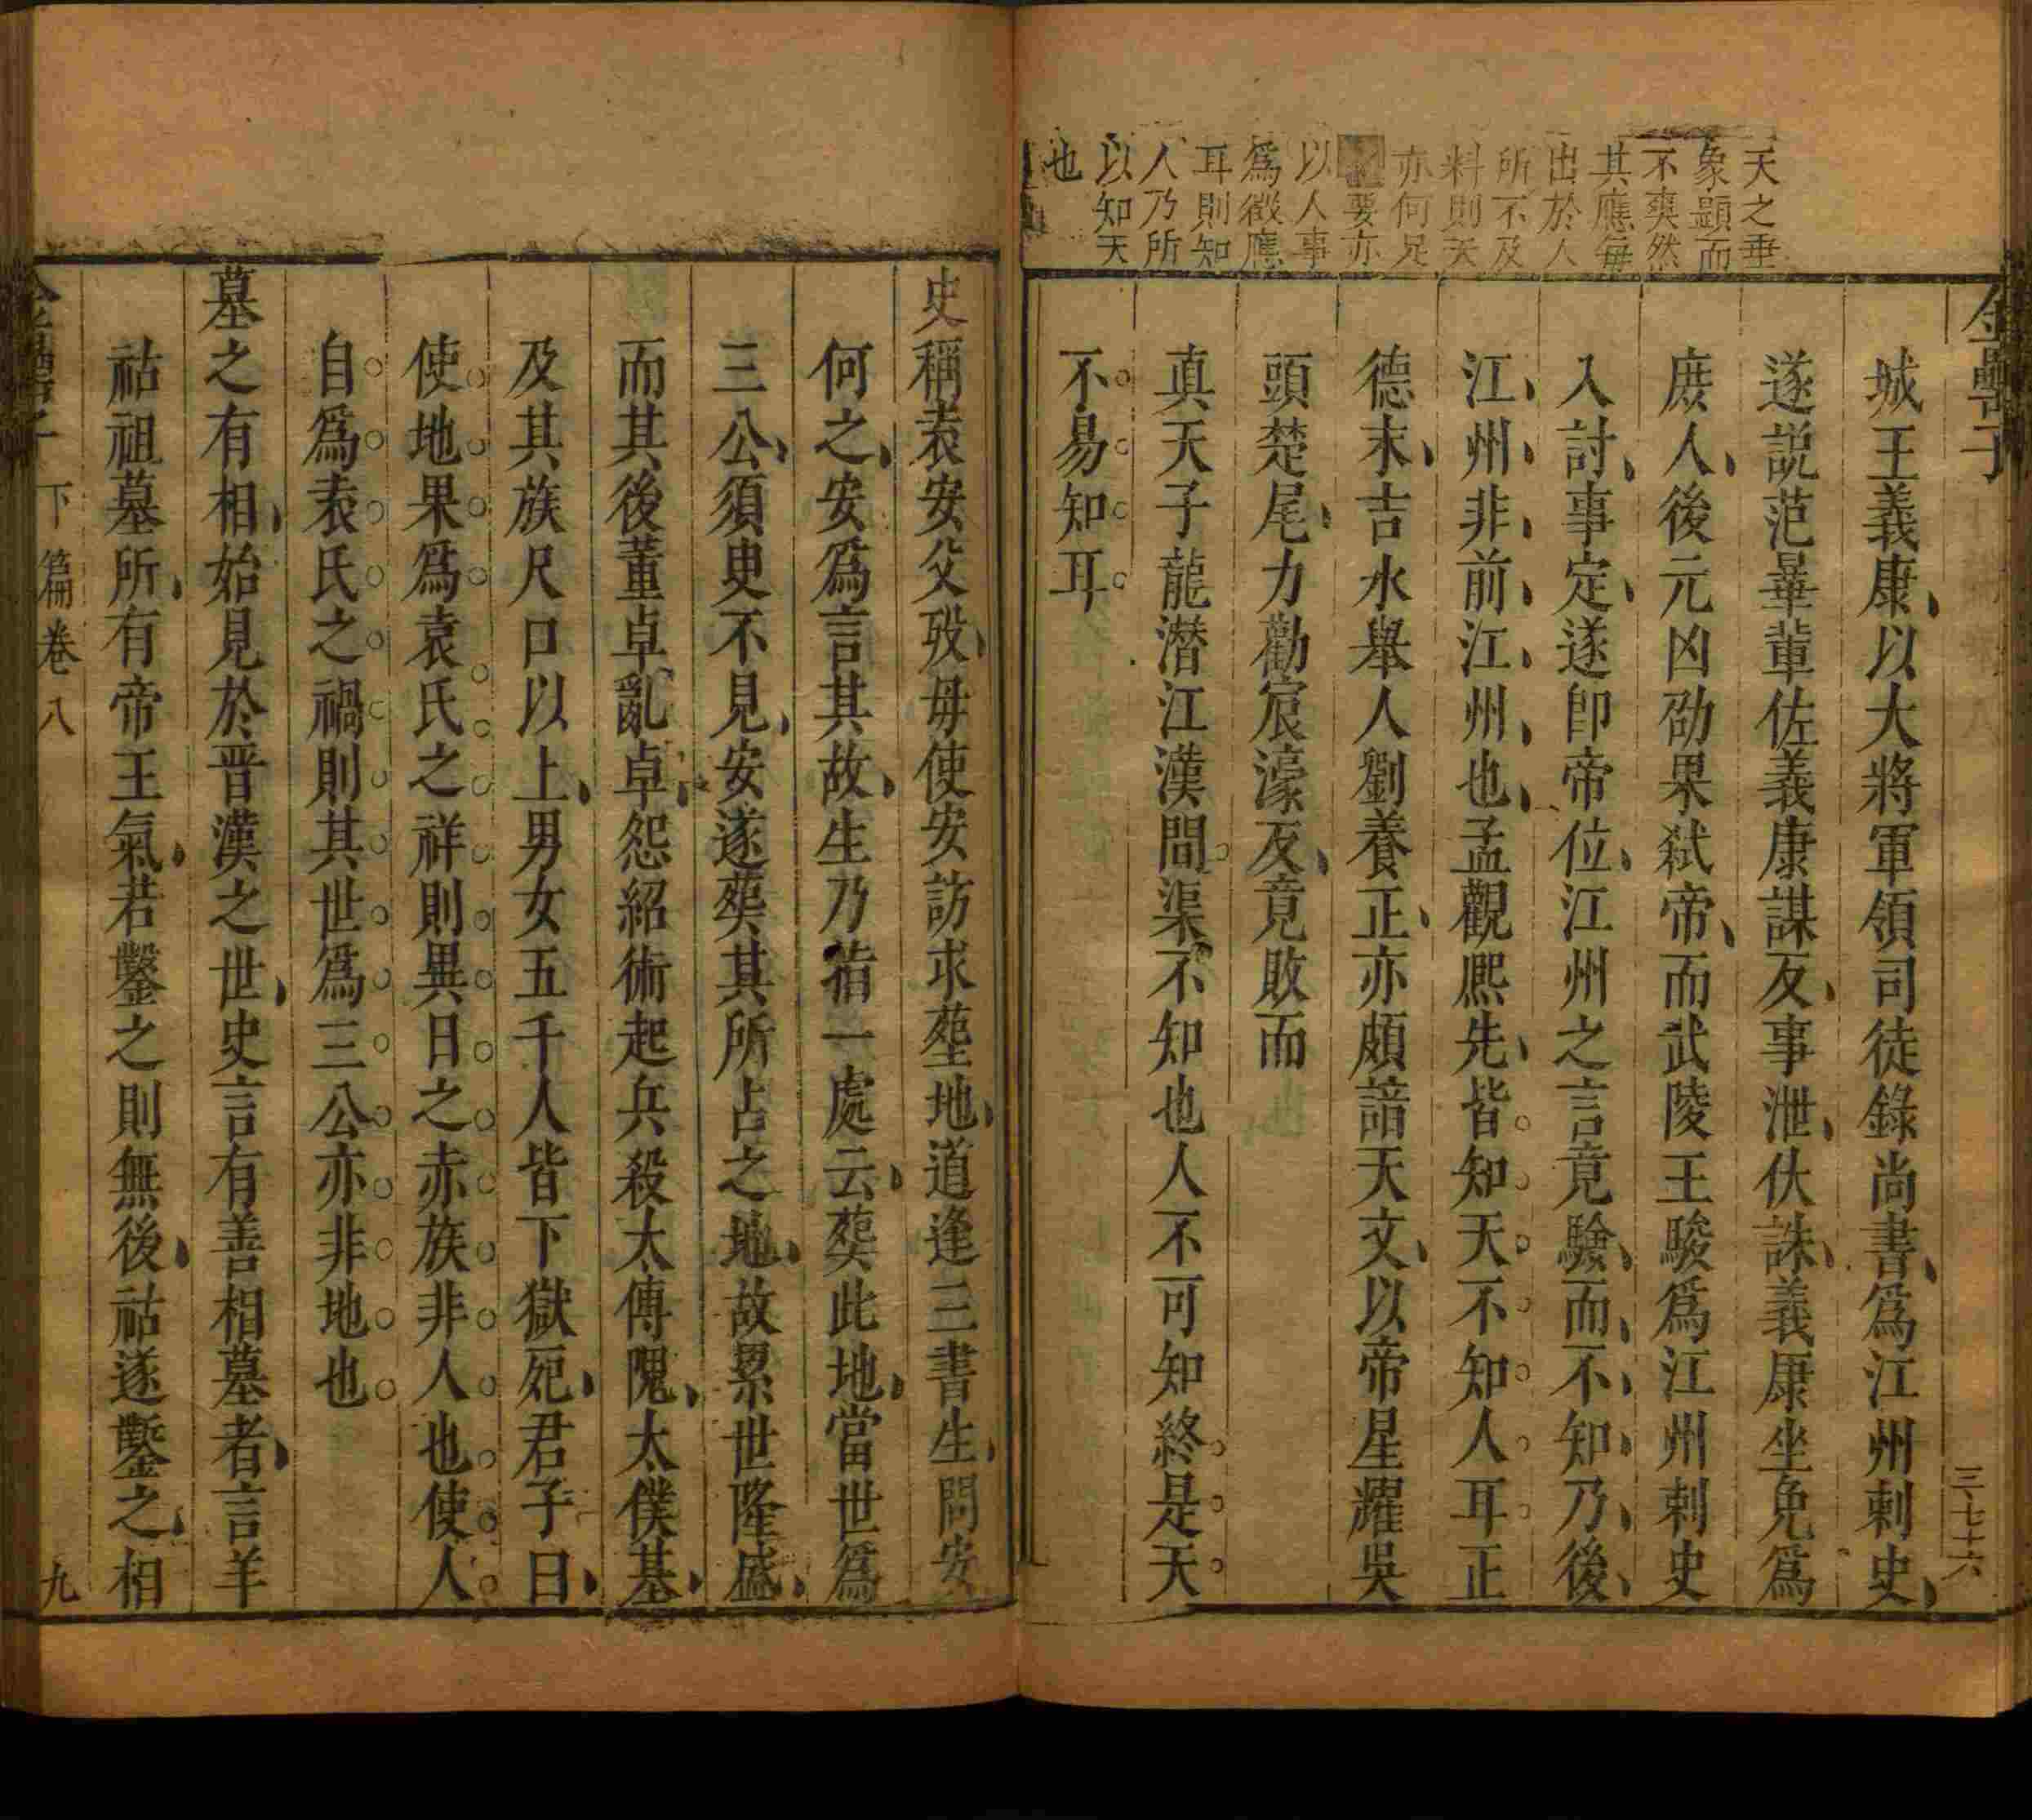 金罍子
天之垂
象顯而
不爽然
其應每
出於人
所不及
料則天
亦何足
要亦
以人事
爲徵應
耳則知
人乃所
以知天
也
城王義康以大將軍領司徒錄尚書爲江州刺史
遂説范曄輩佐義康謀反事泄伏誅義康坐免爲
庶人後元凶劭果弑帝而武陵王駿爲江州刺史
入討事定遂卽帝位江州之言竟驗而不知乃後
江州非前江州也孟觀熈先皆知天不知人耳正
德末吉水舉人劉養正亦頗諳天文以帝星耀吳
頭楚尾力勸宸濠反竟敗而
真天子龍潜江漢間渠不知也人不可知終是天
不易知耳
三七十六
史稱袁安父殁毋使安訪求塟地道逢三書生問安
何之安爲言其故生乃指一處云葬此地當世爲
三公須臾不見安遂葬其所占之地故累世隆盛
而其後董卓亂卓怨紹術起兵殺太傅隗太僕基
及其族尺口以上男女五千人皆下獄死君子曰
使地果爲袁氏之祥則異日之赤族非人也使人
自爲袁氏之禍則其世爲三公亦非地也
墓之有相始見於晋漢之世史言有善相墓者言羊
祜祖墓所有帝王氣若鑿之則無後祜遂鑿之相
金罍子 下篇卷八 九